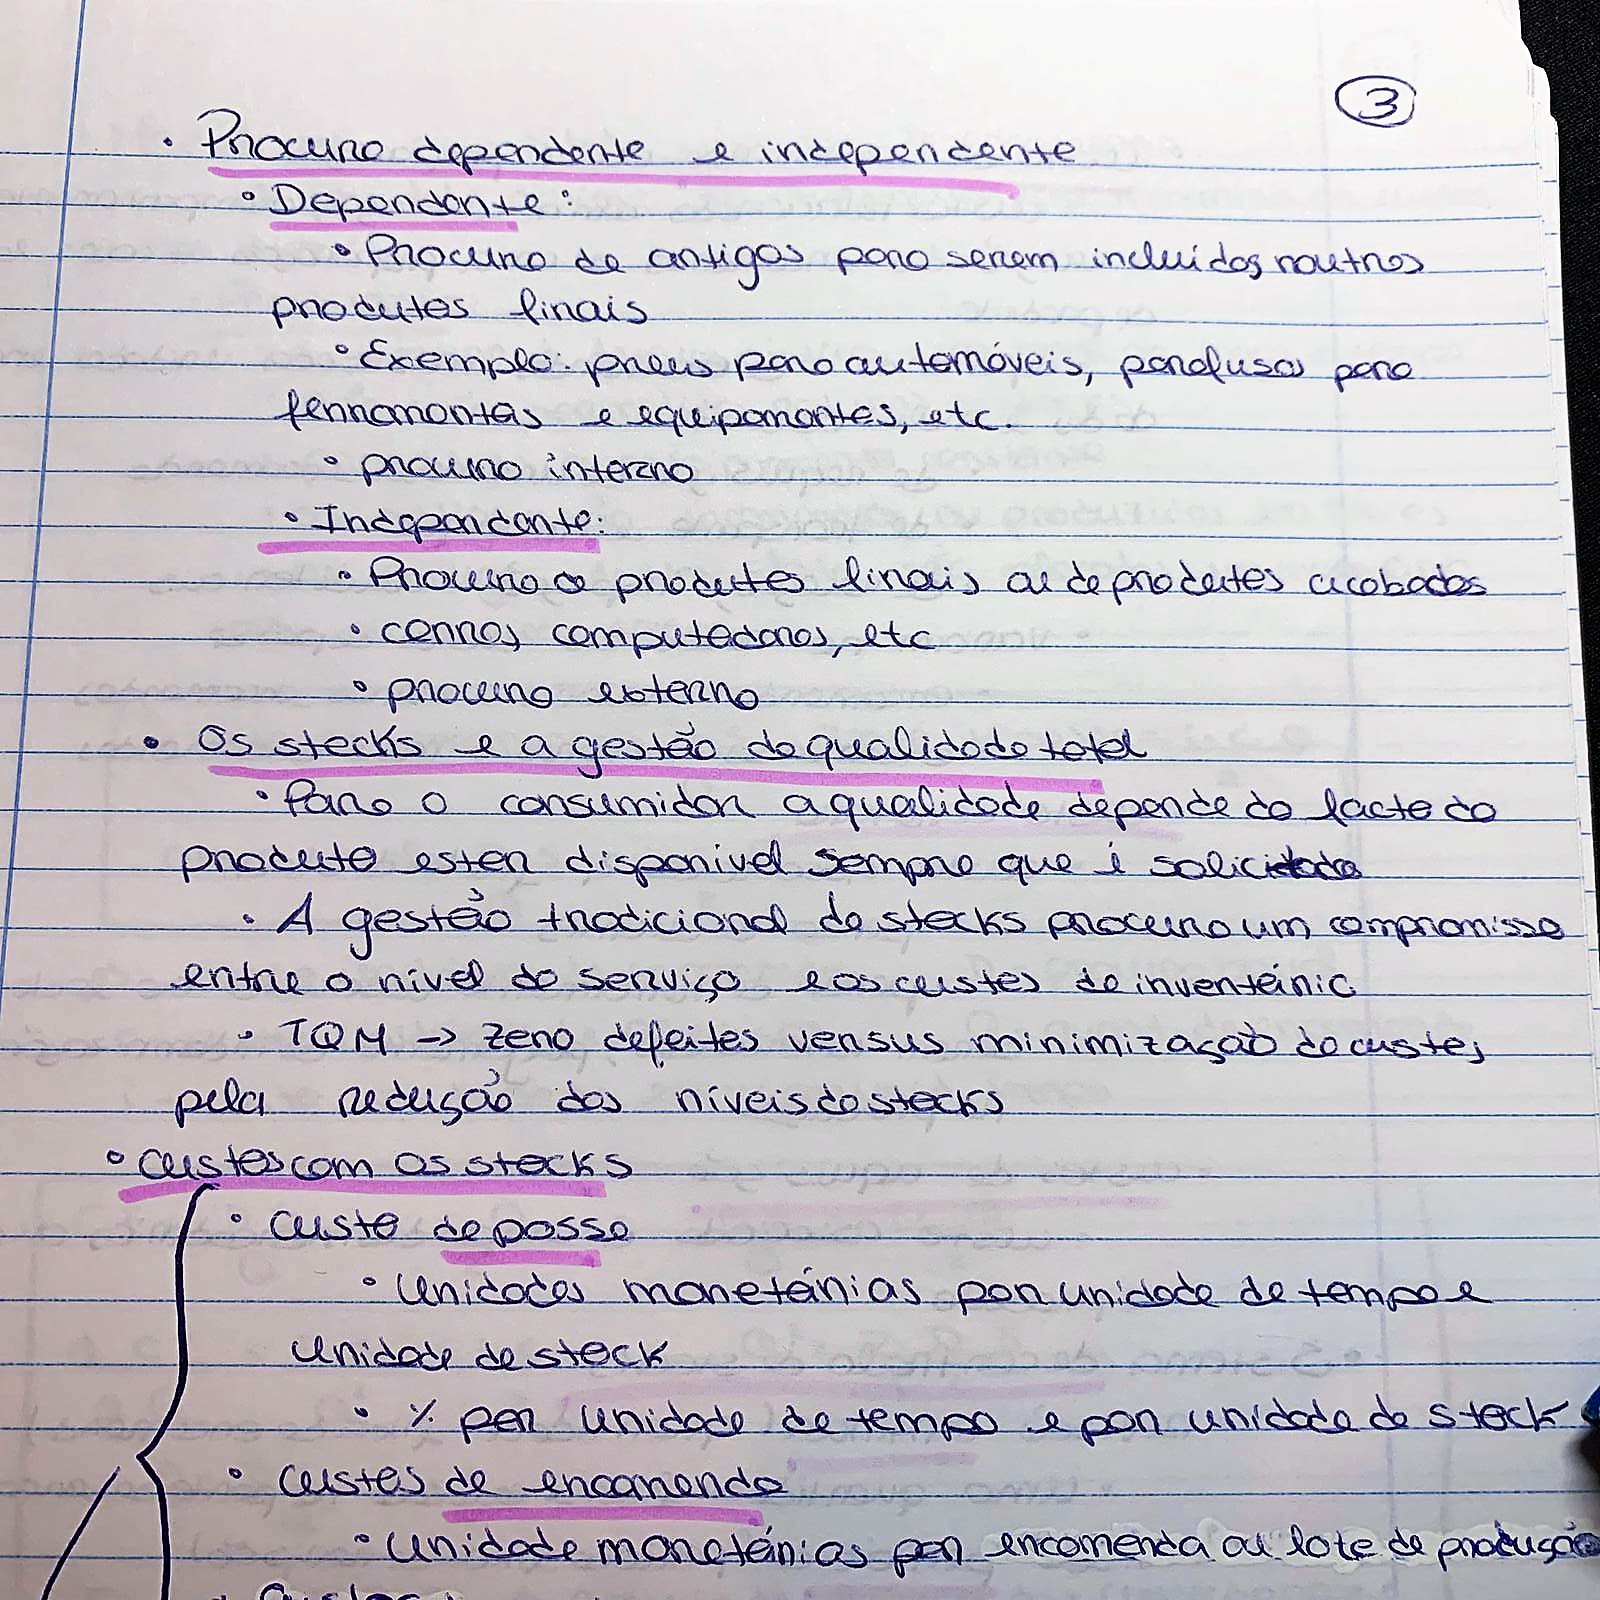 3
• Procura dependente e independente
• Dependente:
• Procura de artigos para serem incluídos noutros
produtos finais
• Exemplo: pneus para automóveis, parafusos para
ferramentas e equipamentos, etc.
• procura interna
• Independente:
• Procura de produtos finais ou de produtos acabados
• carros, computadores, etc
• procura externa
• Os stocks e a gestão da qualidade total
• Para o consumidor a qualidade depende do facto do
produto estar disponível sempre que é solicitado
• A gestão tradicional de stocks procura um compromisso
entre o nível de serviço e os custos de inventário
• TQM -> zero defeitos versus minimização de custos,
pela redução dos níveis de stocks
• Custos com os stocks
• Custo de posse
• Unidades monetárias por unidade de tempo e
unidade de stock
• % por unidade de tempo e por unidade de stock
• Custos de encomenda
• Unidade monetárias por encomenda ou lote de produção